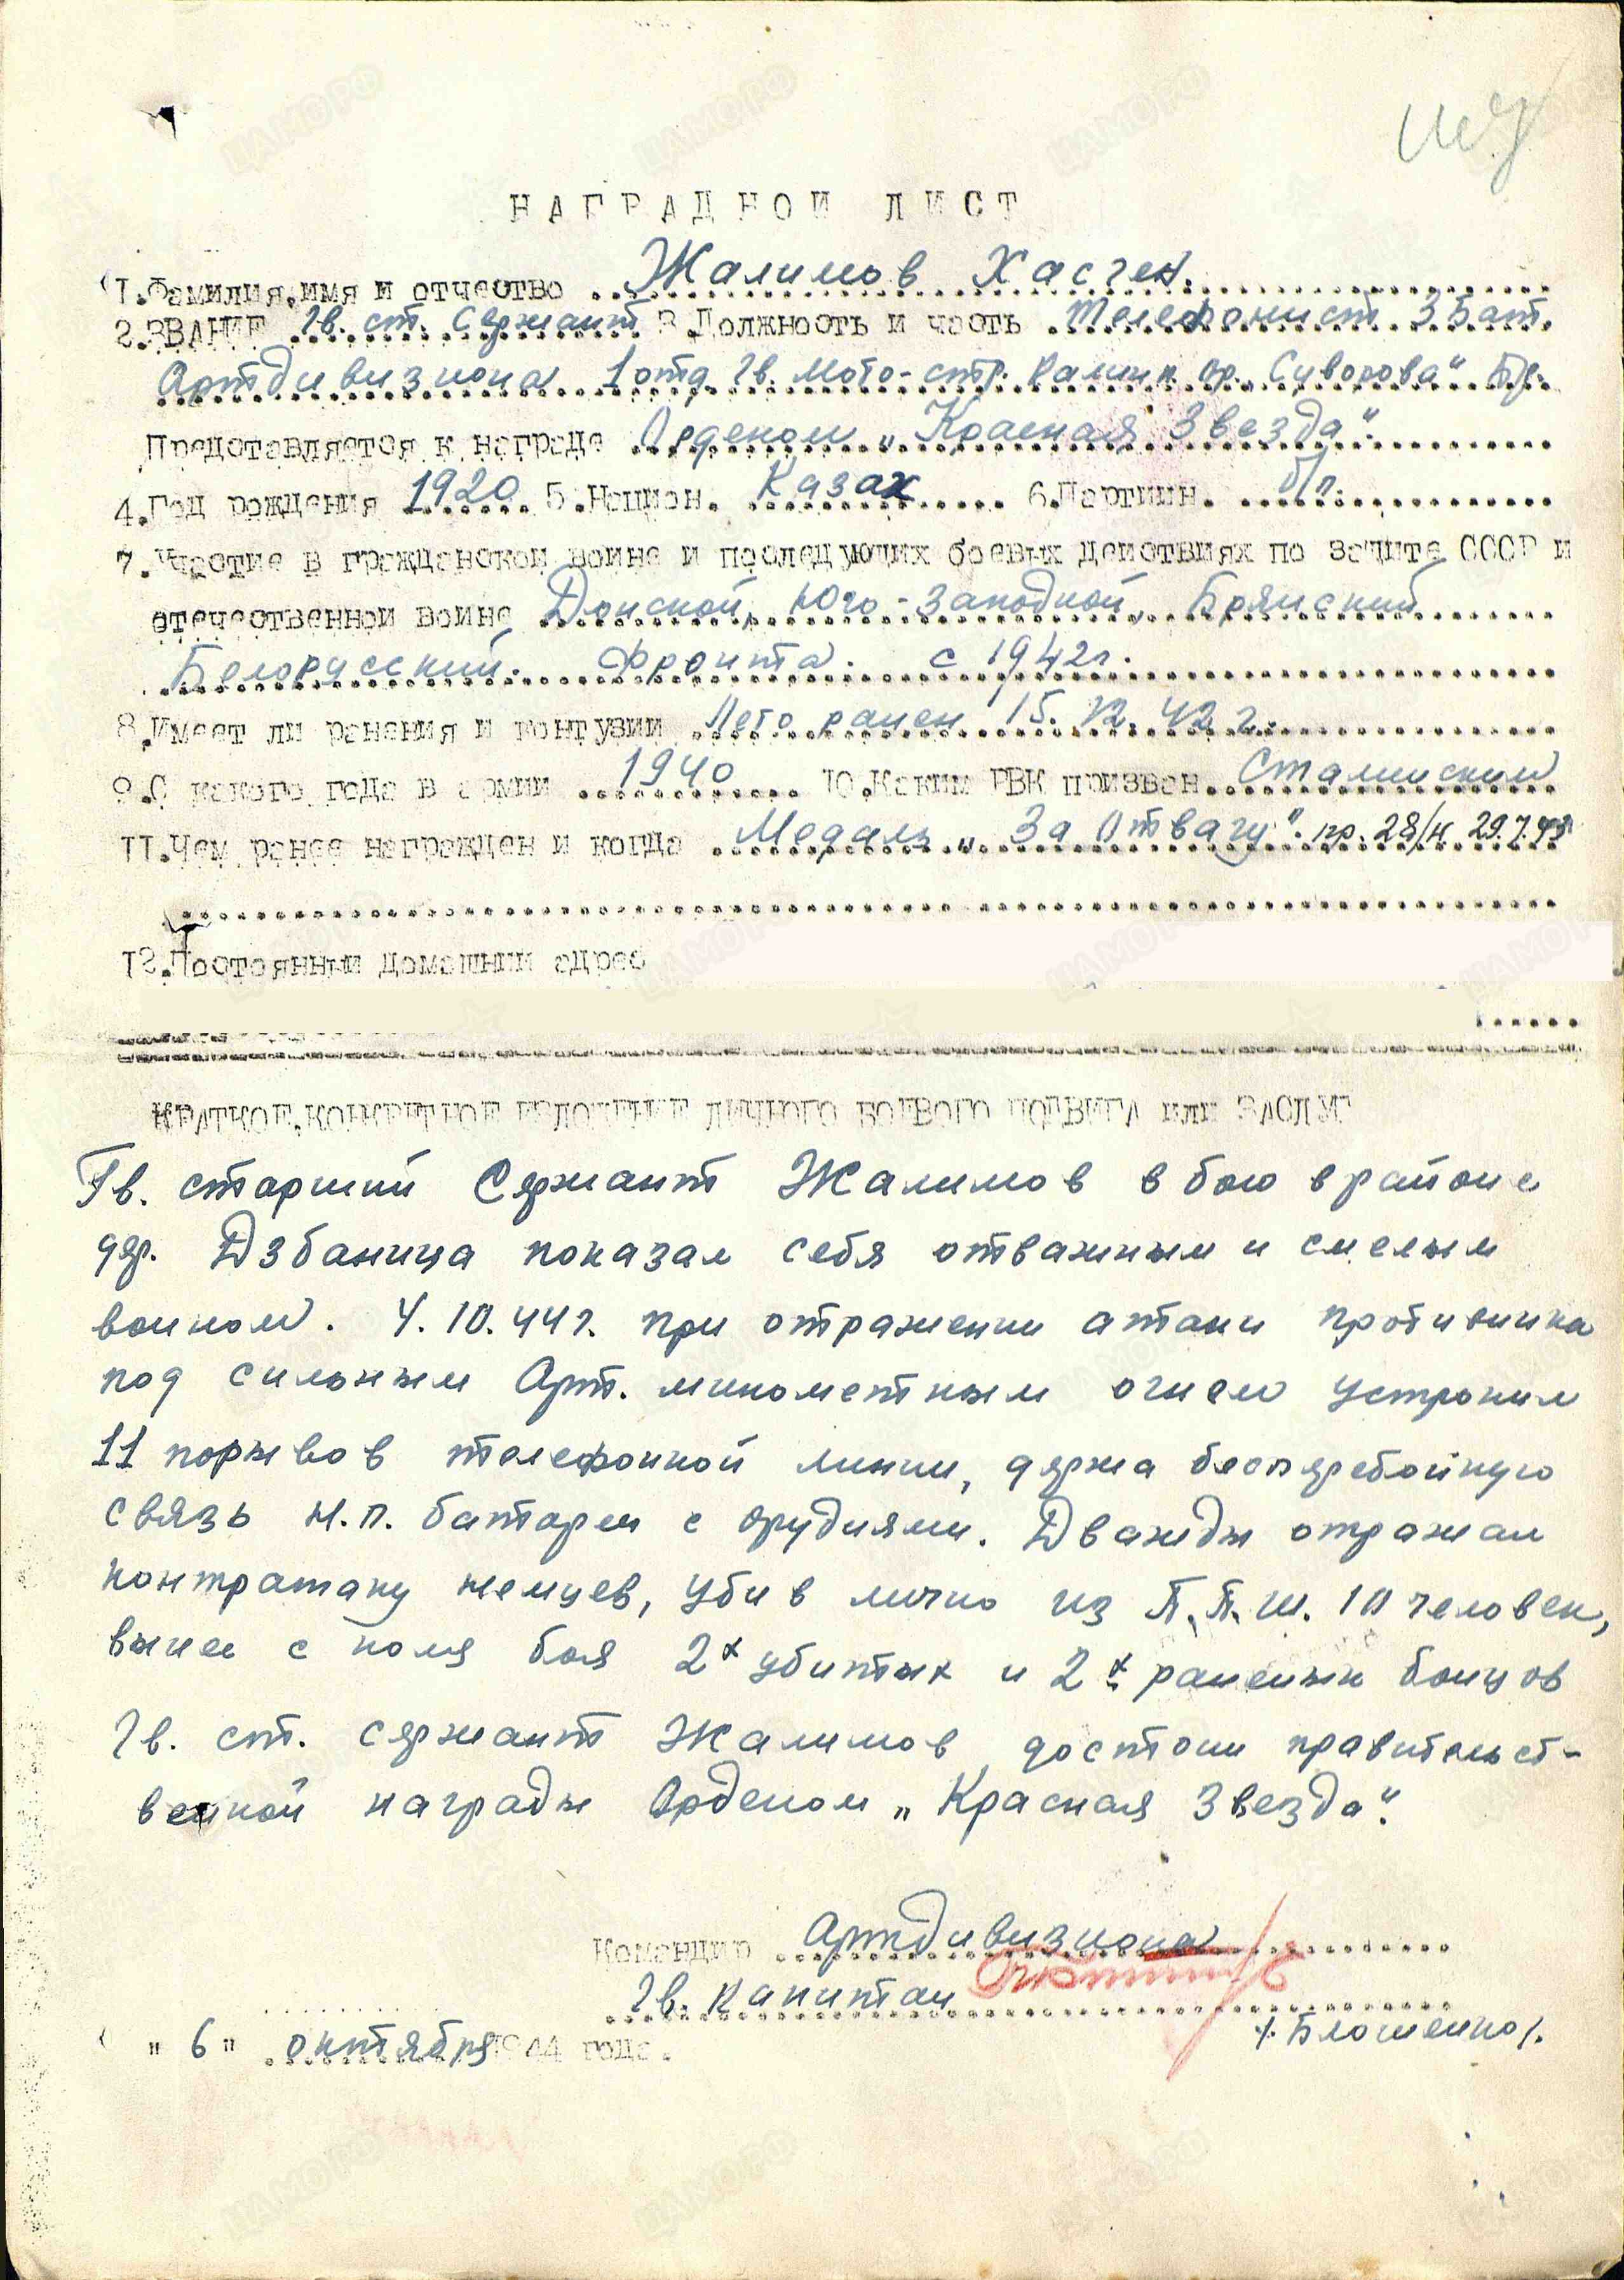 НАГРАДНОЙ ЛИСТ
1.Фамилия,имя и отчество Жалимов Хасген.
2.ЗВАНИЕ Гв. ст. Сержант 3.Должность и часть Телефонист 3 Бат.
Артдивизиона 1 отд. Гв. мото-стр. Калинк. ор. „Суворова“ Бр.
Представляется к награде Орденом „Красная Звезда“.
4.Год рождения 1920 5.Национ. Казах 6.Партийн. б/п.
7.Участие в гражданской войне и последующих боевых действиях по защите СССР и
отечественной войне Донской, Юго-Западной, Брянский
Белорусский. Фронта. с 1942г.
8.Имеет ли ранения и контузии Лего ранен 15. 12. 42 г.
9.С какого года в армии 1940 10.Каким РВК призван Сталинским
11.Чем ранее награжден и когда Медаль „За Отвагу“. пр. 28/н 29.7.43г
12.Постоянный домашний адрес
КРАТКОЕ,КОНКРЕТНОЕ ИЗЛОЖЕНИЕ ЛИЧНОГО БОЕВОГО ПОДВИГА ИЛИ ЗАСЛУГ
Гв. старший Сержант Жалимов в бою в районе
дер. Дзбаница показал себя отважным и смелым
воином. 4. 10. 44 г. при отражении атаки противника
под сильным Арт. минометным огнем устронил
11 порывов телефонной линии, держа бесперебойную
связь Н.П. батареи с орудиями. Дважды отражал
контратаку немцев, убив лично из П.П.Ш. 10 человек,
вынес с поля боя 2х убитых и 2х раненых бойцов
Гв. ст. сержант Жалимов достоин правительст-
венной награды Орденом „Красная Звезда“.
Командир Артдивизиона
Гв. Капитан
/Блошенко/.
"6" октября 1944 года.
ЦАМО РФ